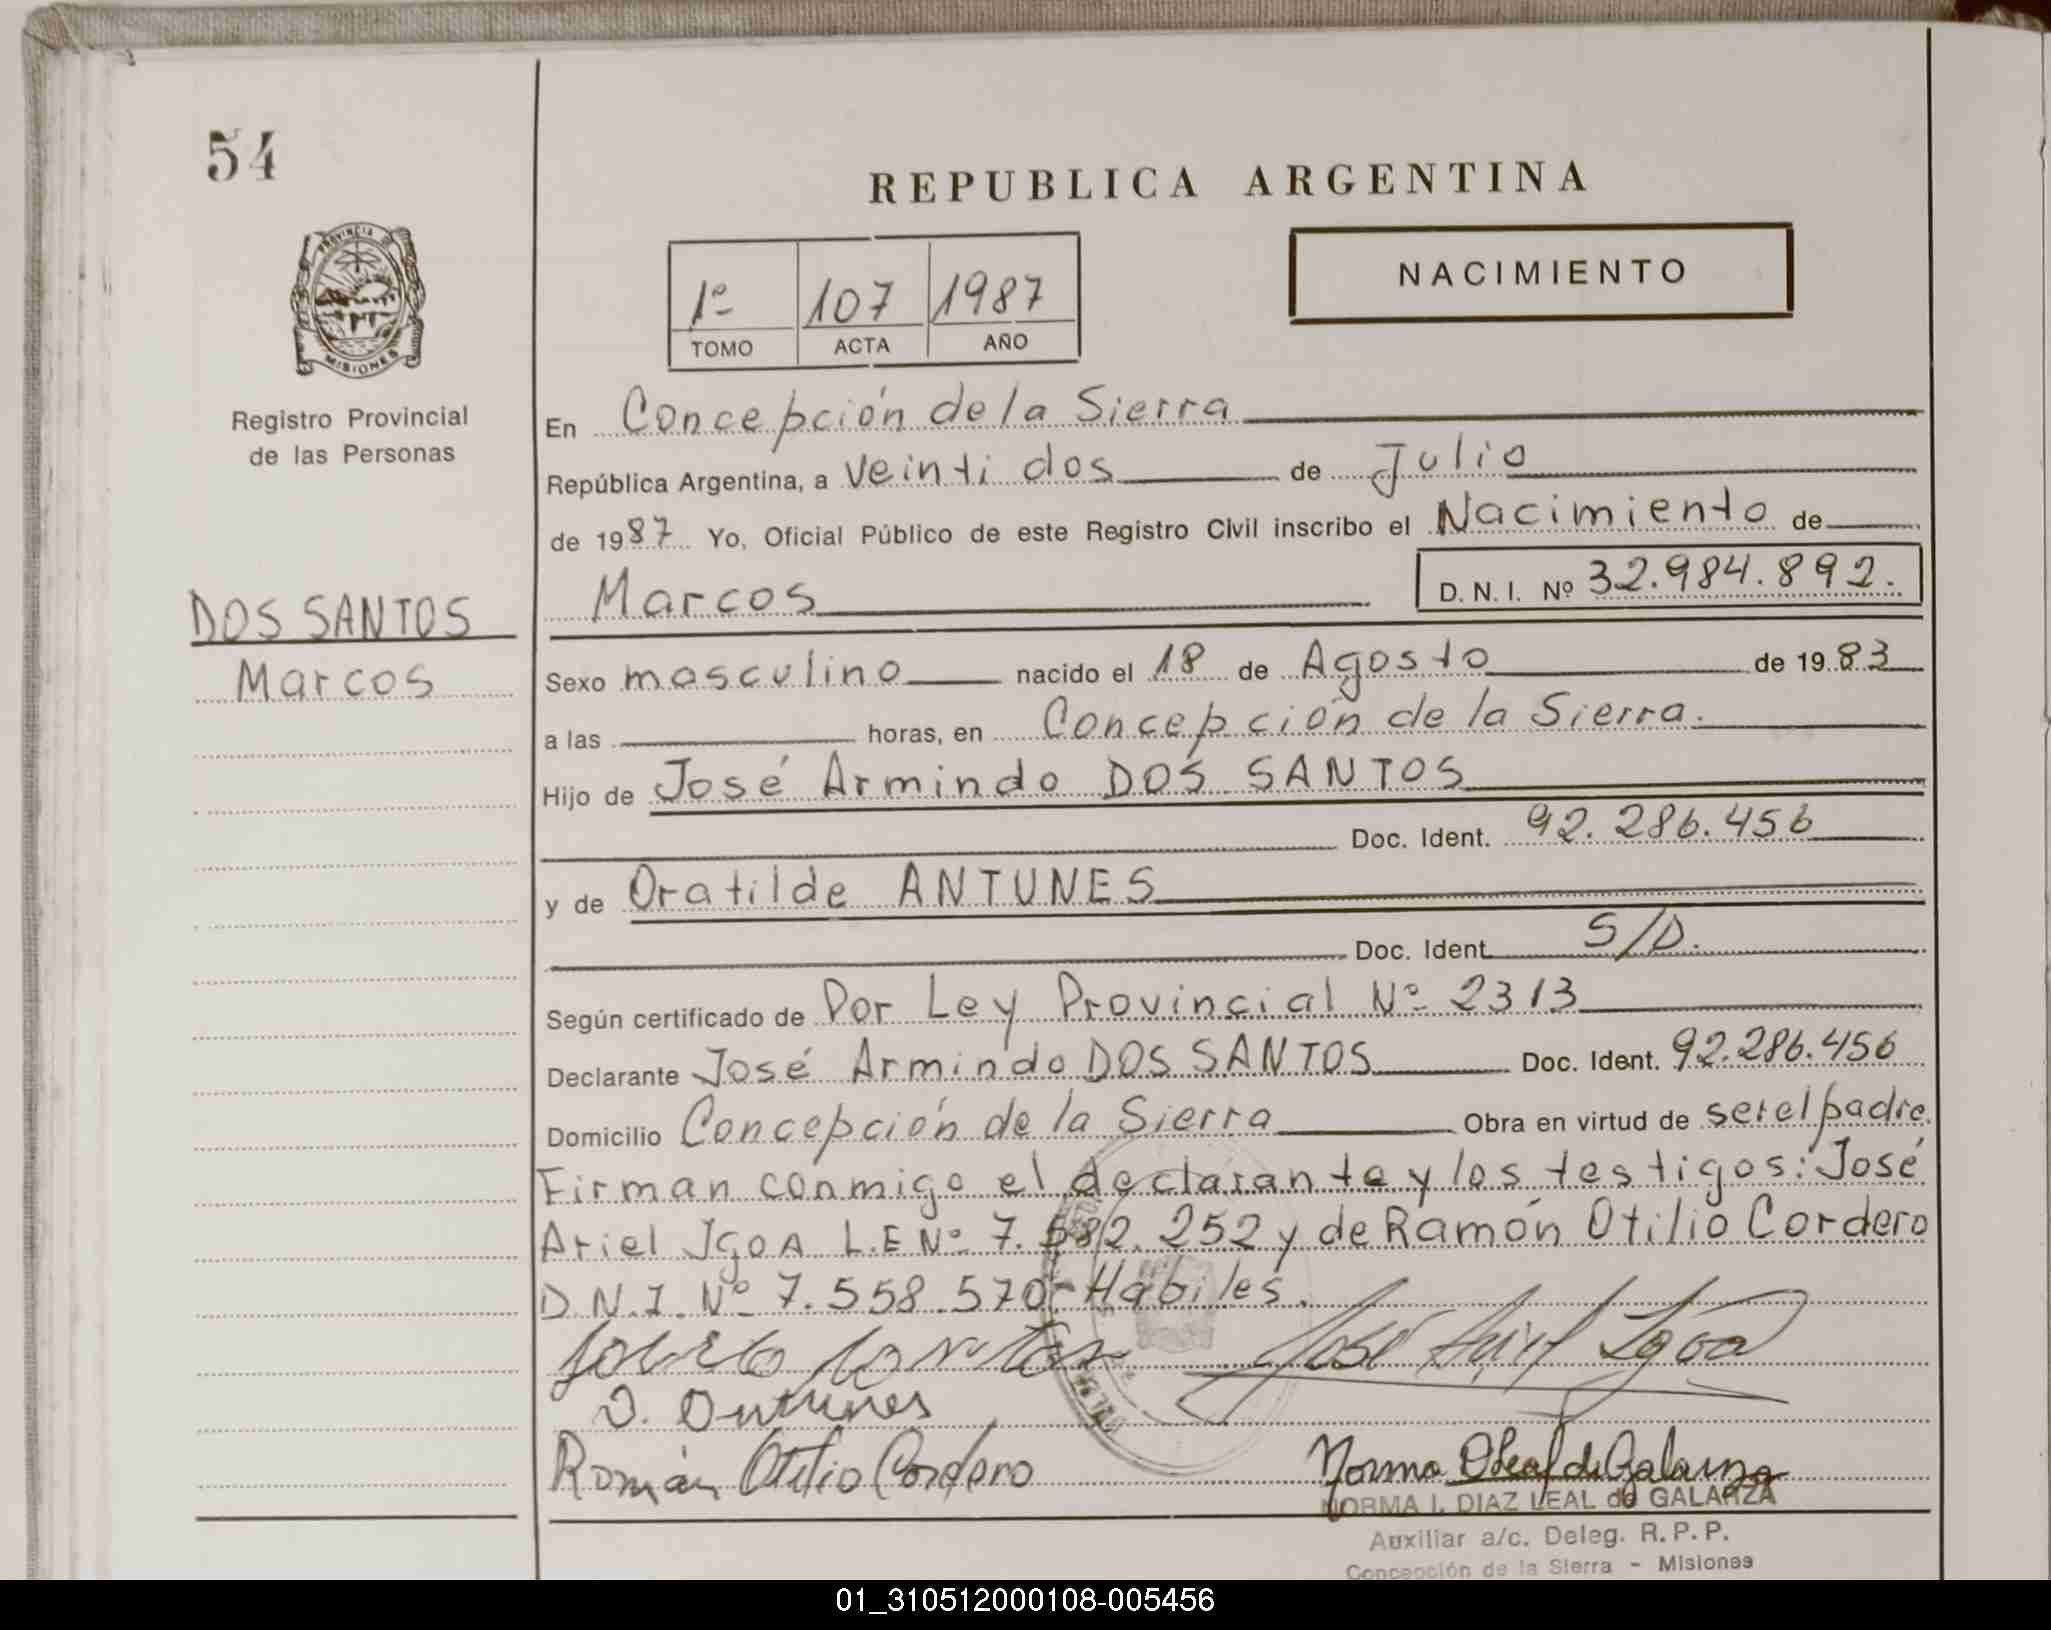 54
REPUBLICA ARGENTINA
PROVINCIA DE
MISIONES
Registro Provincial
de las Personas
1º 107 1987
TOMO ACTA AÑO
NACIMIENTO
En Concepción de la Sierra
República Argentina, a Veinti dos de Julio
de 1987 Yo, Oficial Público de este Registro Civil inscribo el Nacimiento de
Marcos D. N. I. Nº 32.984.892.
DOS SANTOS
Marcos
Sexo masculino nacido el 18 de Agosto de 1983
a las horas, en Concepción de la Sierra.
Hijo de José Armindo DOS SANTOS
Doc. Ident. 92.286.456
y de Oratilde ANTUNES
Doc. Ident. S/D.
Según certificado de Por Ley Provincial Nº 2313
Declarante José Armindo DOS SANTOS Doc. Ident. 92.286.456
Domicilio Concepción de la Sierra Obra en virtud de ser el padre.
Firman conmigo el declarante y los testigos: José
Ariel Igoa L.E Nº 7.582.252 y de Ramón Otilio Cordero
D.N.I. Nº 7.558.570- Habiles.
José Ariel Igoa
O. Antunes
Román Otilio Cordero
Norma D Leal de Galarza
NORMA I. DIAZ LEAL de GALARZA
Auxiliar a/c. Deleg. R.P.P.
Concepción de la Sierra - Misiones
01_310512000108-005456